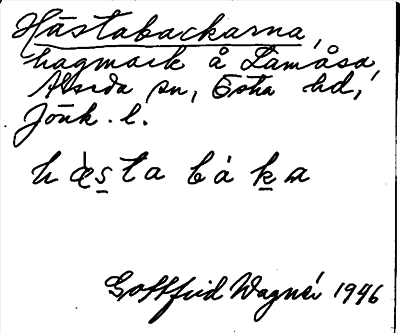 Hästabackarna,
hagmark å Lamåsa,
Alseda sn, Östra hd,
Jönk. l.
hæ̀s̲ta bák̲a
Gottfrid Wagnér 1946